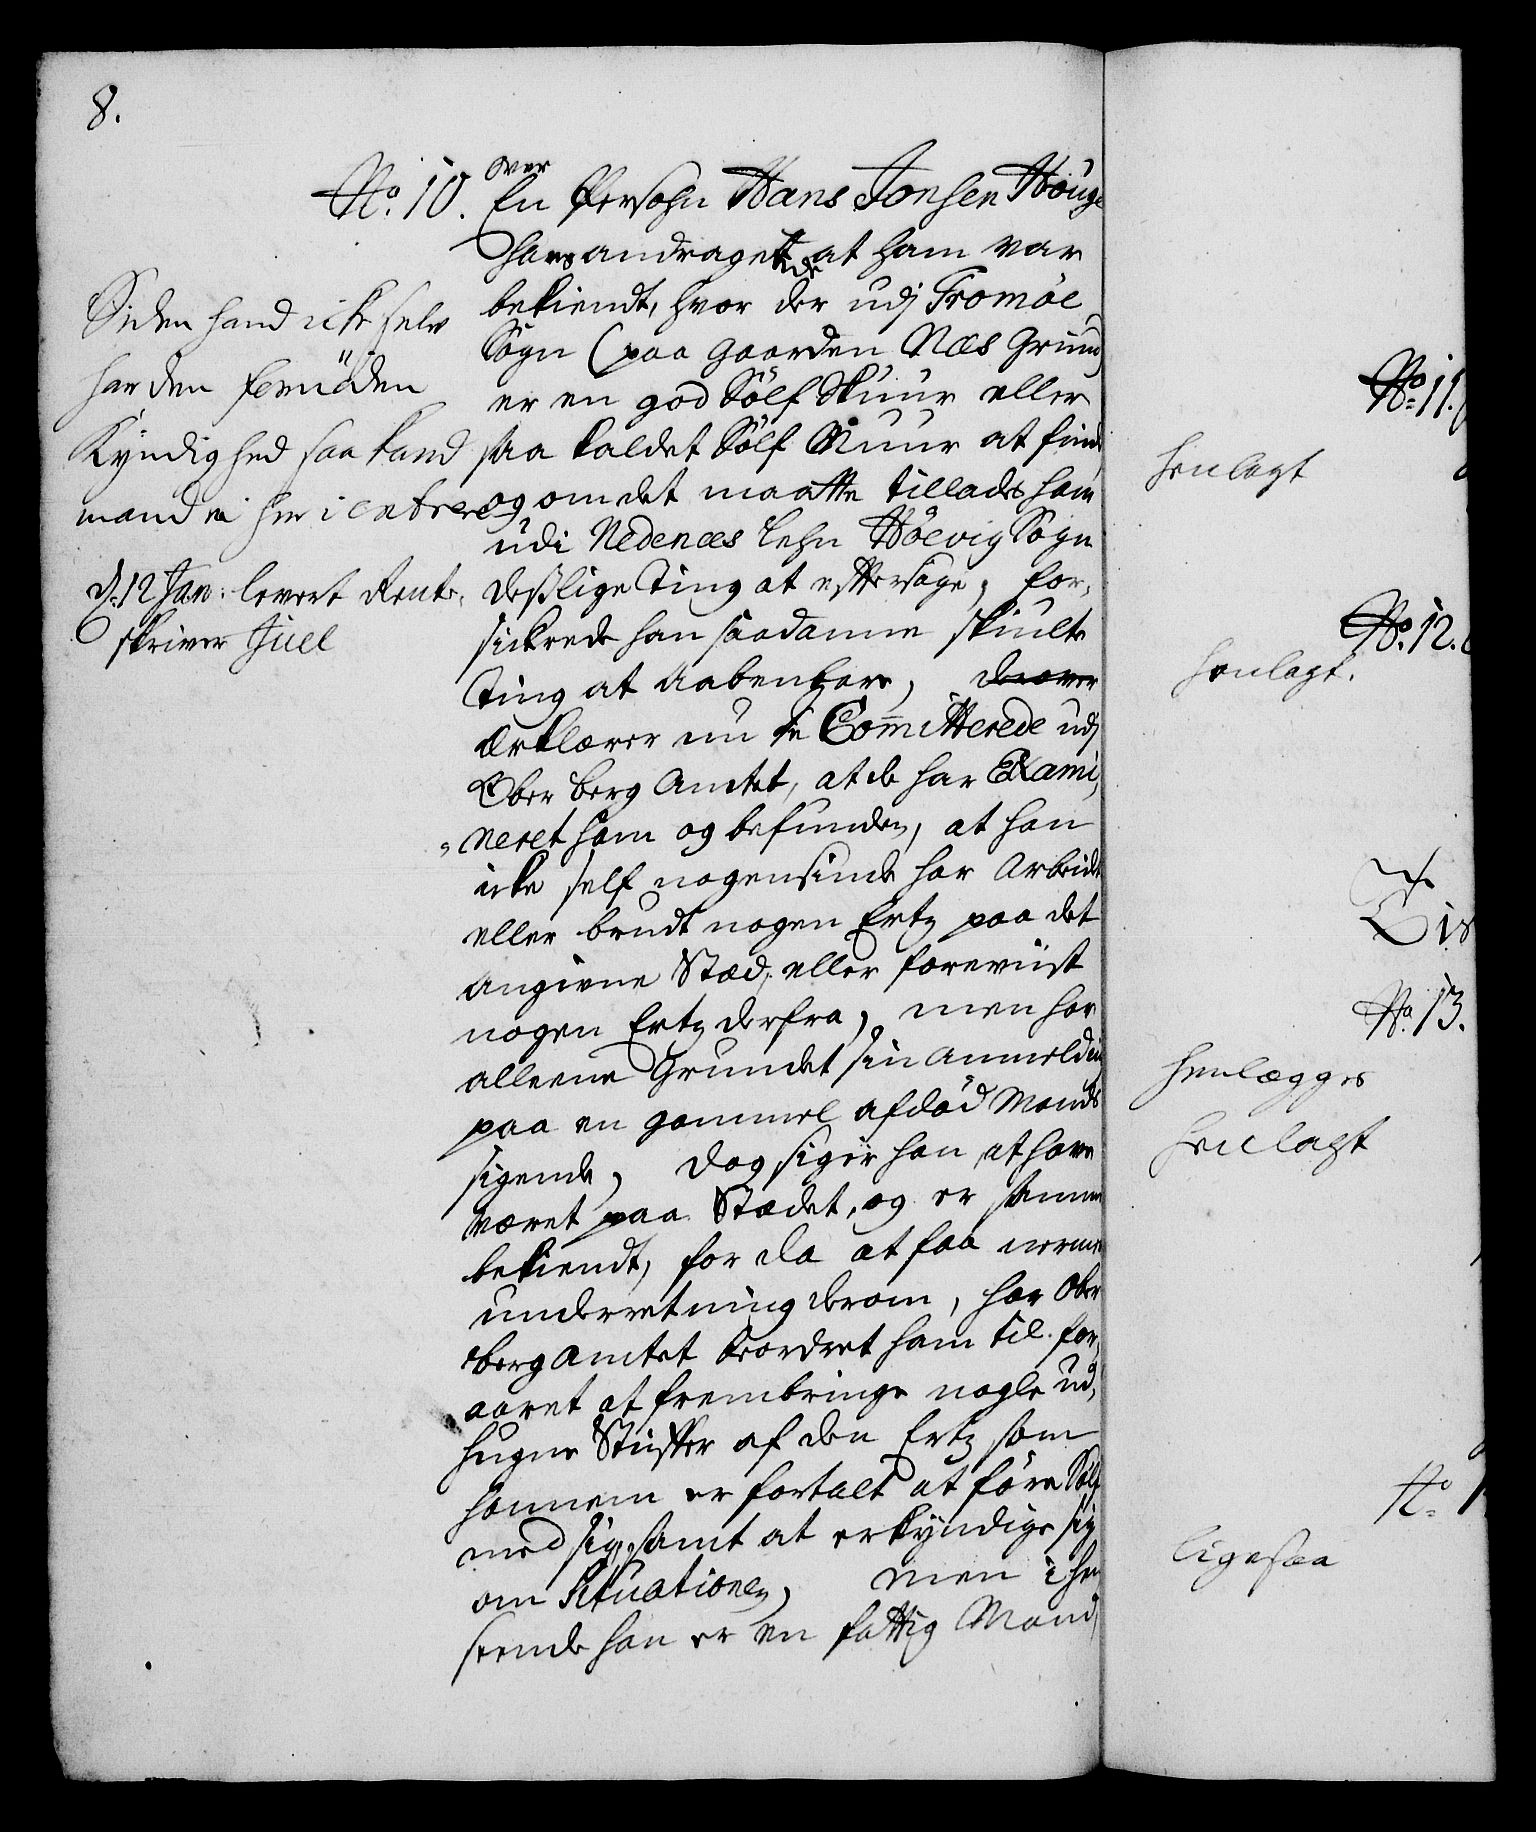 8.
No. 10.
over
En Persohn Hans Jonsen Houge
hans andragende at ham var
bekiendt, hvor der udj Tromöe
Sogn (paa gaarden Næs Grund
er en god Sölf Skuur eller
saa kaldet Sölf Muur at finde
og om det maatte tillades ham
udi Nedenæs Lehn Höevig Sogn
deslige Ting at eftersöge, for,
sickrede han saadanne skiulte
Ting at aabenbare, derover
Erklærer nu de Committerede udj
Ober Berg Amtet, at de har Exami,
neret ham og befunden, at han
icke self nogensinde har Arbeidet
eller brudt nogen Ertz paa det
angivne Stæd, eller foreviist
nogen Ertz derfra, men har
alleene Grundet sin anmeldin
paa en gammel afdöd Mands
sigende, dog siger han at have
været paa Stædet, og er samme
bekiendt, for da at faa nerme
underretning derom, har Ober
berg Amtet beordret ham til for,
aaret at frembringe nogle ud,
hugne Stuffer af den Ertz som
hannem er fortalt at före Sölf
med sig, samt at erkyndige sig
om Situationen, men i hen
seende han er en fattig Mand,
Siden hand icke selv
har den fornöden
Kyndighed saa kand
mand ei her i entrere
d. 12 Jan: levert Rente,
skriver Juel
No. 11.
henlagt
No. 12.
henlagt.
No. 13.
henlægges
henlagt
No. 1
ligesaa